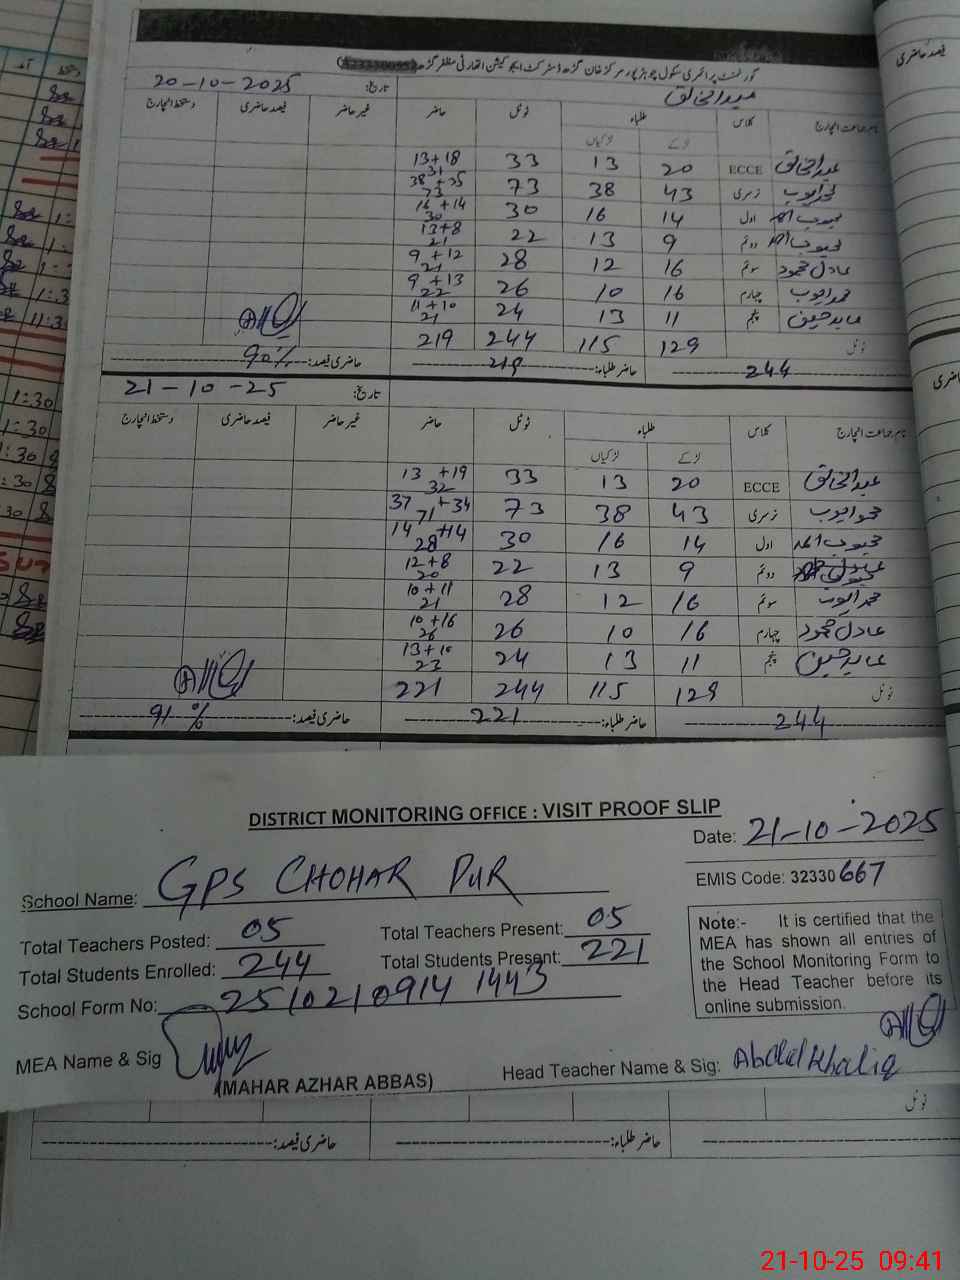 گورنمنٹ پرائمری سکول چوہڑپور، مرکز خان گڑھ ڈسٹرکٹ ایجوکیشن اتھارٹی مظفرگڑھ
عبدالخالق
تاریخ: 20-10-2025
نام جماعت انچارج کلاس طلباء ٹوٹل حاضر غیر حاضر فیصد حاضری دستخط انچارج
لڑکے لڑکیاں
عبدالخالق ECCE 20 13 33 13+18 31
محمد ایوب نرسری 43 38 73 38+35 73
محبوب احمد اول 14 16 30 16+14 30
محبوب احمد دوئم 9 13 22 13+8 21
عادل محمود سوئم 16 12 28 9+12 21
محمد ایوب چہارم 16 10 26 9+13 22
عابد حسین پنجم 11 13 24 11+10 21
ٹوٹل 129 115 244 219
244 حاضر طلباء: 219 حاضری فیصد: 90%
تاریخ: 21-10-25
نام جماعت انچارج کلاس طلباء ٹوٹل حاضر غیر حاضر فیصد حاضری دستخط انچارج
لڑکے لڑکیاں
عبدالخالق ECCE 20 13 33 13+19 32
محمد ایوب نرسری 43 38 73 37+34 71
محبوب احمد اول 14 16 30 14+14 28
دوئم 9 13 22 12+8 20
محمد ایوب سوئم 16 12 28 10+11 21
عادل محمود چہارم 16 10 26 10+16 26
عابد حسین پنجم 11 13 24 13+10 23
ٹوٹل 129 115 244 221
244 حاضر طلباء: 221 حاضری فیصد: 91%
DISTRICT MONITORING OFFICE : VISIT PROOF SLIP
Date: 21-10-2025
School Name: GPS CHOHAR PUR
EMIS Code: 32330667
Total Teachers Posted: 05 Total Teachers Present: 05
Total Students Enrolled: 244 Total Students Present: 221
School Form No: 25102109141443
Note:- It is certified that the
MEA has shown all entries of
the School Monitoring Form to
the Head Teacher before its
online submission.
MEA Name & Sig
(MAHAR AZHAR ABBAS)
Head Teacher Name & Sig: Abdul Khaliq
ٹوٹل
حاضر طلباء: حاضری فیصد:
فیصد حاضری
حاضری
21-10-25 09:41